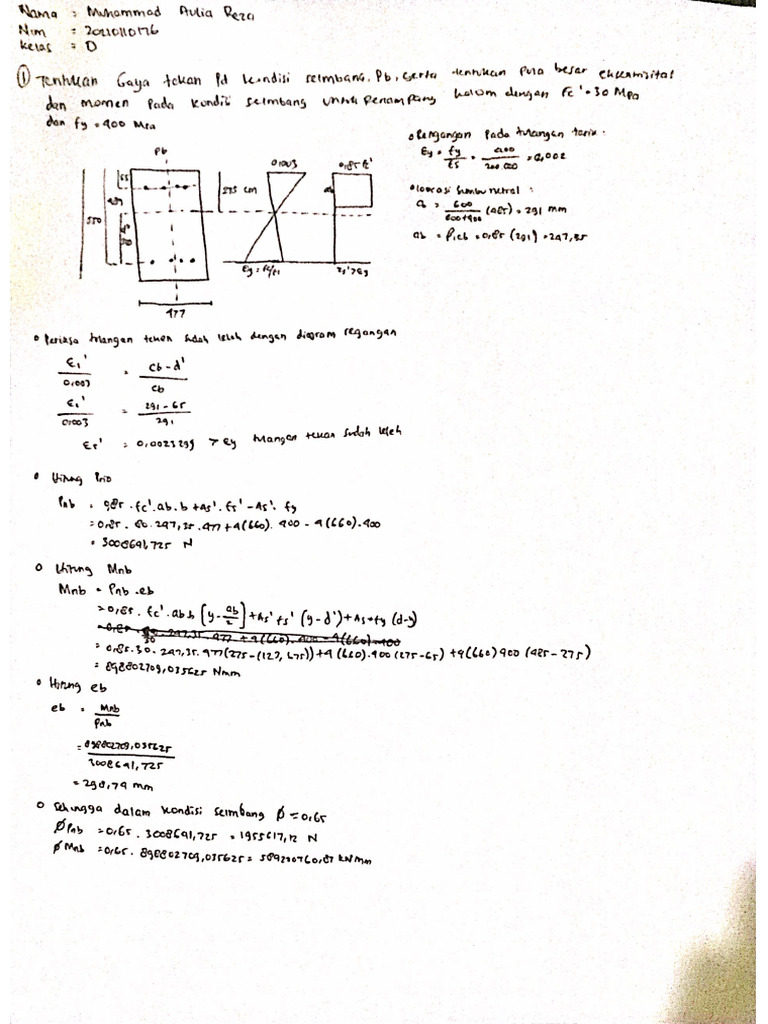 Nama : Muhammad Aulia Reza
Nim : 20210110176
Kelas : D
① Tentukan Gaya tekan Pd kondisi seimbang, Pb, serta tentukan pula besar eksentrisitas
dan momen pada kondisi seimbang untuk penampang kolom dengan Fc' = 30 MPa
dan fy = 400 MPa
Pb
65
485
550
275 cm
477
0,003
Ey = fy/Es
0,85 fc'
o Regangan Pada tulangan tarik :
Ey = fy/Es = 400/200.000 = 0,002
o lokasi sumbu netral :
= 600/600+400 (485) = 291 mm
ab = β1.cb = 0,85 (291) = 247,35
o Periksa tulangan tekan sudah leleh dengan diagram regangan
/0,003 = cb - d'/cb
/0,003 = 291 - 65/291
Es' = 0,0023299 > Ey tulangan tekan sudah leleh
o Hitung
Pnb = 0,85 . fc' . ab . b + As' . fs' - As' . fy
= 0,85 . . 247,35 . 477 + 4(660) . 400 - 4(660) . 400
= 3008691,725 N
o Hitung Mnb
Mnb = Pnb . eb
= 0,85 . fc' . ab.b [y - ab/2] + As' fs' (y - d') + As fy (d-y)
= 0,85 . 30 . 247,35 . 477 + 4(660) . 400 - 4(660) . 400
= 0,85 . 30 . 247,35 . 477 (275 - (123,675)) + 4(660) . 400 (275 - 65) + 4(660) 400 (485 - 275)
= 898802709,035625 Nmm
o Hitung eb
eb = Mnb/Pnb
= 898802709,035625/3008691,725
= 298,74 mm
o Sehingga dalam kondisi seimbang Ø = 0,65
Ø Pnb = 0,65 . 3008691,725 = N
Ø Mnb = 0,65 . 898802709,035625 = kNmm